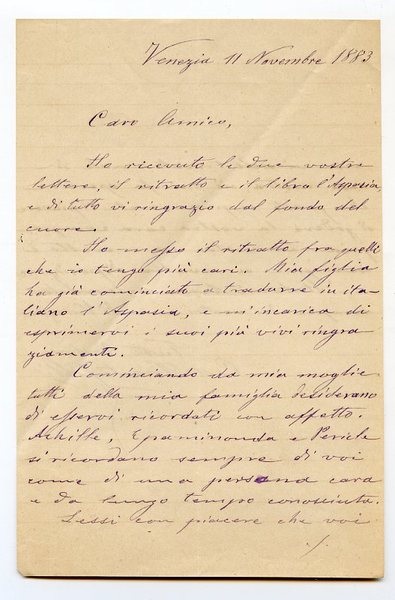 Venezia 11 Novembre 1883
Caro Amico,
Ho ricevuto le due vostre
lettere, il ritratto e il libro l'Aspasia,
e di tutto vi ringrazio dal fondo del
cuore.
Ho messo il ritratto fra quelli
che io tengo più cari. Mia figlia
ha già cominciato a tradurre in ita-
liano l'Aspasia, e m'incarica di
esprimervi i suoi più vivi ringra
ziamenti.
Cominciando da mia moglie
tutti della mia famiglia desiderano
di esservi ricordati con affetto.
Achille, Epaminonda e Pericle
si ricordano sempre di voi
come di una persona cara
e da lungo tempo conosciuta.
Lessi con piacere che voi